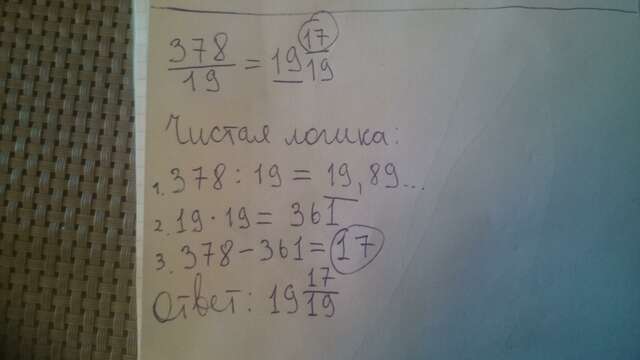 378/19 = 19 17/19
Чистая логика:
1. 378 : 19 = 19,89...
2. 19 · 19 = 361
3. 378 - 361 = 17
Ответ: 19 17/19